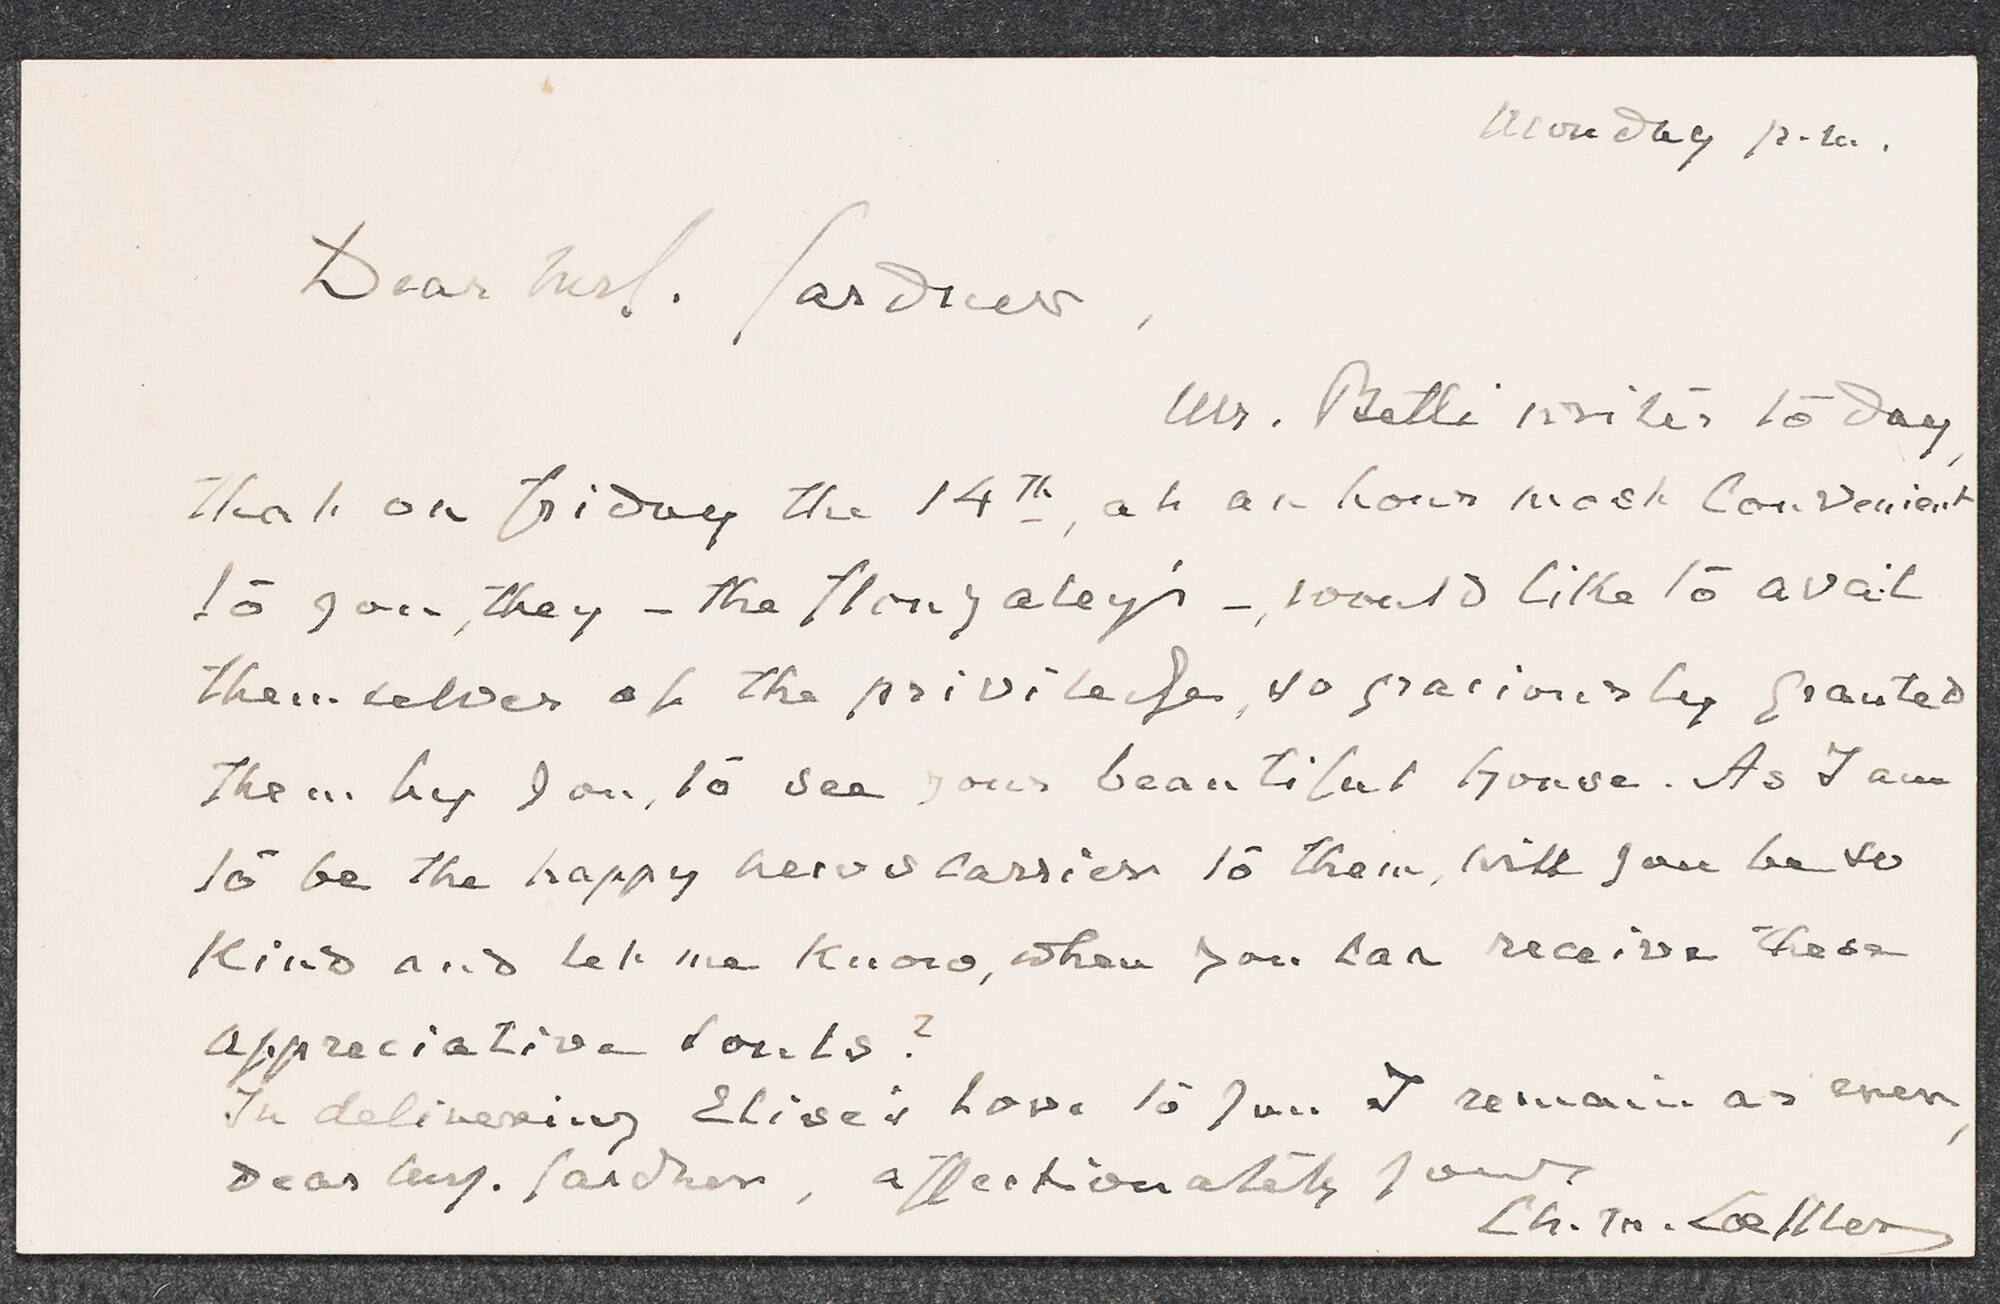 Monday p.m.
Dear Mrs. Gardner,
Mr. Betti writes to day,
that on Friday the 14th, at an hour most convenient
to you, they - the Flonzaley's -, would like to avail
themselves of the privilege, so graciously granted
them by you, to see your beautiful house. As I am
to be the happy newscarrier to them, will you be so
kind and let me know, when you can receive these
appreciative souls?
In delivering Elise's love to you I remain as ever,
Dear Mrs. Gardner, affectionately yours
Ch. M. Loeffler